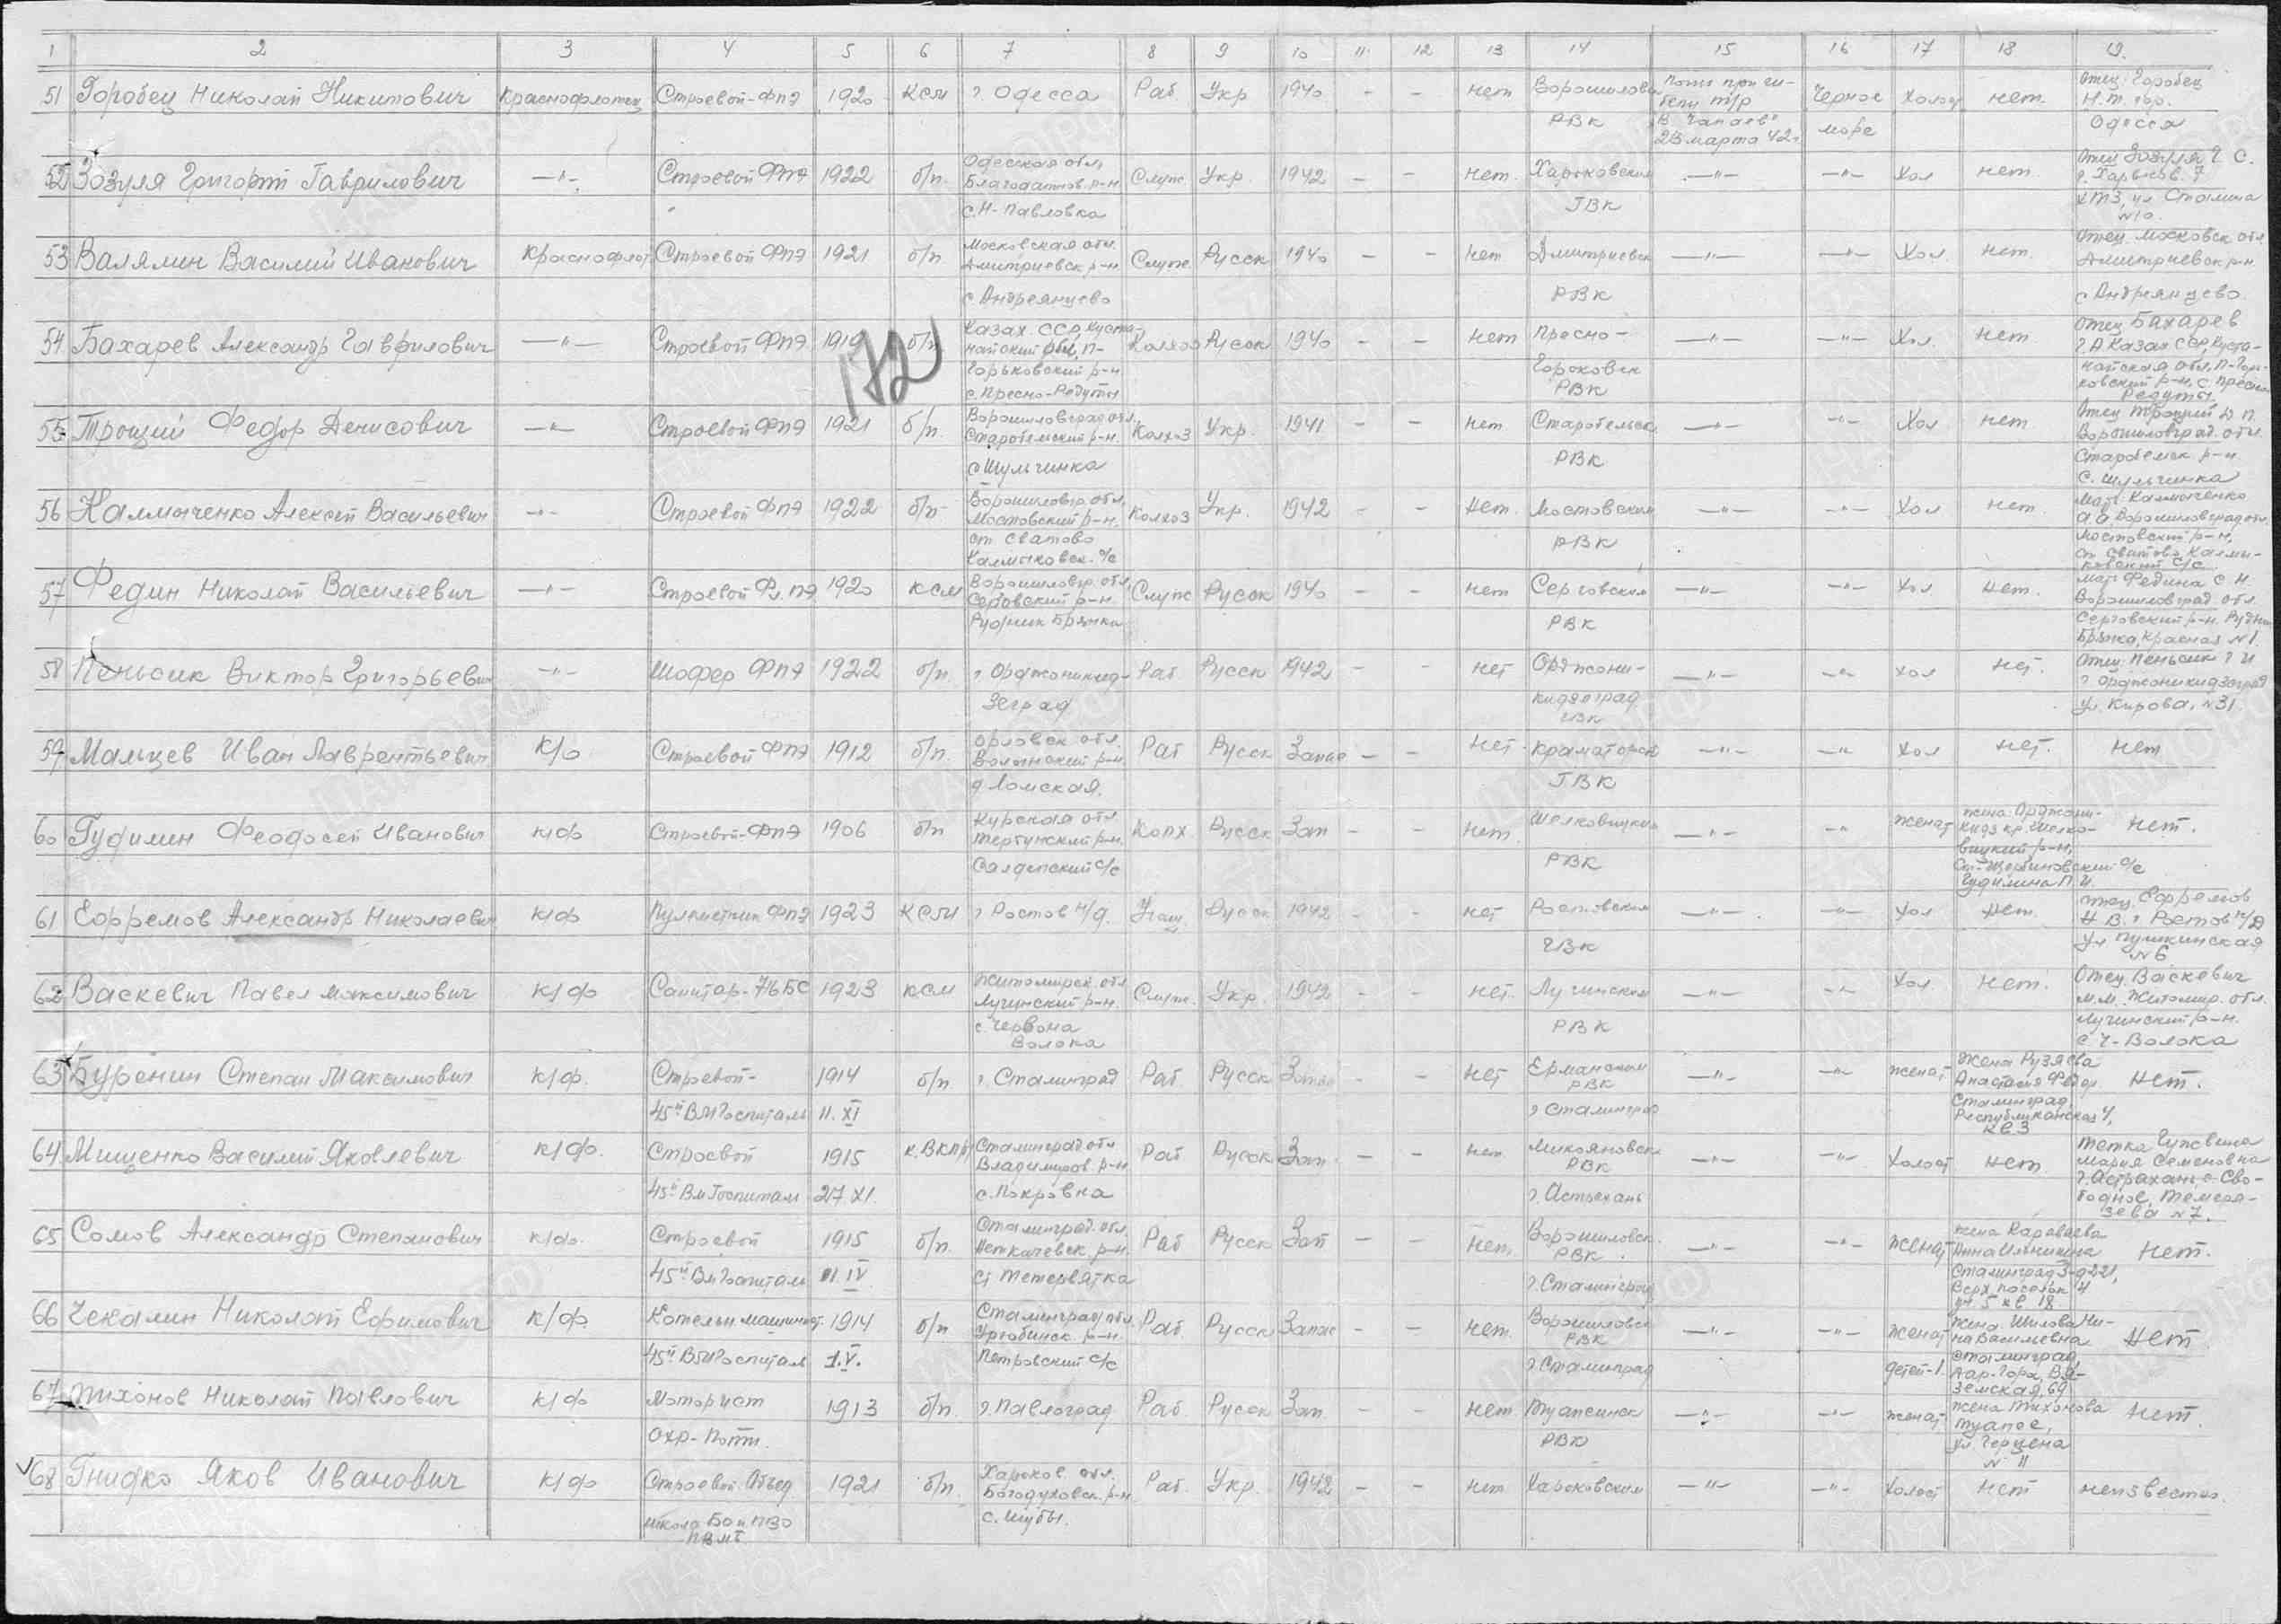 1 2 3 4 5 6 7 8 9 10 11 12 13 14 15 16 17 18 19.
51 Горобец Николай Никитович Краснофлотец Строевой-ФПЭ 1920 КСМ г. Одесса Раб Укр 1940 - - нет Ворошиловск РВК Погиб при гибели т/р "Чапаев" 23 марта 42г Черное море Холост нет. Отец Горобец Н.Т. гор. Одесса
52 Зозуля Григорий Гаврилович —"— Строевой ФПЭ 1922 б/п. Одесская обл, Благодатнов. р-н с. Н-Павловка Служ Укр. 1942 - - нет. Харьковским ГВК —"— —"— Хол нет. Отец Зозуля Г. С. г. Харьков. 7 ХТЗ, ул Сталина №10.
53 Валялин Василий Иванович Краснофлот Строевой ФПЭ 1921 б/п Московская обл. Дмитриевск р-н с Андреянцево Служ. Русск 1940 - - нет Дмитриевск РВК —"— —"— Хол. нет. Отец Московск обл Дмитриевск р-н с Андреянцево.
54 Бахарев Александр Гаврилович —"— Строевой ФПЭ 1919 б/п Казах. ССР, Кустанайский обл, П-Горьковский р-н с. Пресно-Редуты Колхоз Русск 1940 - - нет Пресно-Горьковск РВК —"— —"— Хол. нет Отец Бахарев Г.А Казах ССР, Кустанайская обл. П-Горьковский р-н, с. Пресно Редуты.
172
55 Троций Федор Денисович —"— Строевой ФПЭ 1921 б/п. Ворошиловград обл, Старобельский р-н. с Шульгинка Колхоз Укр. 1941 - - нет. Старобельск РВК —"— —"— Хол нет. Отец Троций Д П. Ворошиловград. обл. Старобельск. р-н. с. Шульгинка
56 Калмыченко Алексей Васильевич —"— Строевой ФПЭ 1922 б/п Ворошиловгр. обл, Мостовский р-н. ст Сватово Калмыковск. с/с Колхоз Укр. 1942 - - Нет. Мостовским РВК —"— —"— Хол нет. Мать Калмыченко Ворошиловград обл. Мостовский р-н, ст Сватово, Калмыковский с/с
57 Федин Николай Васильевич —"— Строевой Фл ПЭ 1920 КСМ Ворошиловгр. обл, р-н. Рудник Брянка Служ Русск 1940 - - нет Серговским РВК —"— —"— Хол Нет. Мать Федина С Н. Ворошиловград. обл. Серговский р-н. Рудник Брянка, Красная №1.
58 Пеньсик Виктор Григорьевич —"— Шофер ФПЭ 1922 б/п. г. Орджоникидзеград Раб Русск 1942 - - нет Орджоникидзеград РВК —"— —"— Хол нет. Отец Пеньсик Г И г. Орджоникидзеград ул. Кирова, №31.
59 Мальцев Иван Лаврентьевич К/ф Строевой ФПЭ 1912 б/п. Орловск обл. р-н. д Ломская. Раб Русск Запас - - нет. Краматорск ГВК —"— —"— Хол нет. нет
60 Гудилин Феодосей Иванович к/ф Строевой-ФПЭ 1906 б/п Курская обл. р-н. с/с Колх. Русск Зап - - нет. РВК —"— —"— женат жена: р-н, с/с Гудилина П. И. нет.
61 Ефремов Александр Николаевич к/ф Пулеметчик ФПЭ 1923 КСМ г Ростов н/Д. Учащ. Русск 1942 - - нет Ростовским ГВК —"— —"— Хол Нет. Отец Ефремов Н В. г Ростов н/Д ул Пушкинская №6
62 Васкевич Павел Максимович к/ф Санитар- 1923 КСМ Житомирск. обл Лугинский р-н. с. Червона Волока Служ. Укр. 1942 - - нет. Лугинским РВК —"— —"— Хол. Нет. Отец Васкевич М.М. Житомир. обл. Лугинский р-н. с Ч-Волока
63 Буренин Степан Максимович к/ф. Строевой-45й ВМГоспиталь 1914 11. XI б/п. г. Сталинград Раб Русск Запас - - нет Ерманским РВК г Сталинград —"— —"— женат Жена Рузяева Анастасия Федор. Сталинград, Республиканская 4, кв 3 Нет.
64 Мищенко Василий Яковлевич к/ф. Строевой 45й ВмГоспиталь 1915 27 XI. к. ВКП/б Сталинград обл Владимиров. р-н с. Покровка Раб Русск Зап. - - нет. Микояновск РВК г. Астрахань —"— —"— Холост Нет тетка Мария Семеновна г. Астрахань №7.
65 Сомов Александр Степанович к/ф. Строевой 45й ВмГоспиталь 1915 II. IV б/п. Сталинград. обл. р-н. с Раб Русск Зап - - Нет. Ворошиловск. РВК. г. Сталинград —"— —"— женат жена Караваева Анна Ильинична Сталинград Верх поселок 5 кв 18 Нет.
66 Чекалин Николай Ефимович к/ф Котельн машинист. 45й ВМГоспиталь 1914 1. V. б/п Сталинград обл. Урюбинск. р-н. Петровский с/с Раб. Русск Запас - - нет. Ворошиловск РВК г. Сталинград —"— —"— женат детей-1. жена Шилова Нина Васильевна Сталинград Дар-Гора, Вяземская, 69 Нет
67 Тихонов Николай Павлович к/ф Моторист Охр- 1913 б/п. г. Павлоград Раб Русск Зап. - - нет Туапсинск РВК —"— —"— женат жена Тихонова Туапсе, ул. Герцена № 11 Нет.
68 Гнидко Яков Иванович к/ф Строевой Объед школа БО и ПВО 1921 б/п. Харьков. обл. Богодуховск. р-н с. Шубы. Раб. Укр. 1942 - - нет Харьковским —"— —"— Холост нет неизвестно.